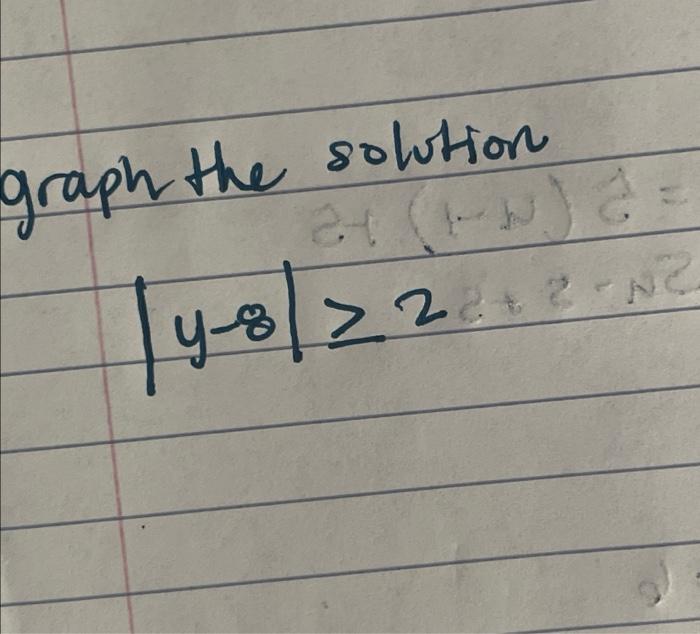 graph the solution
|y-8| ≥ 2